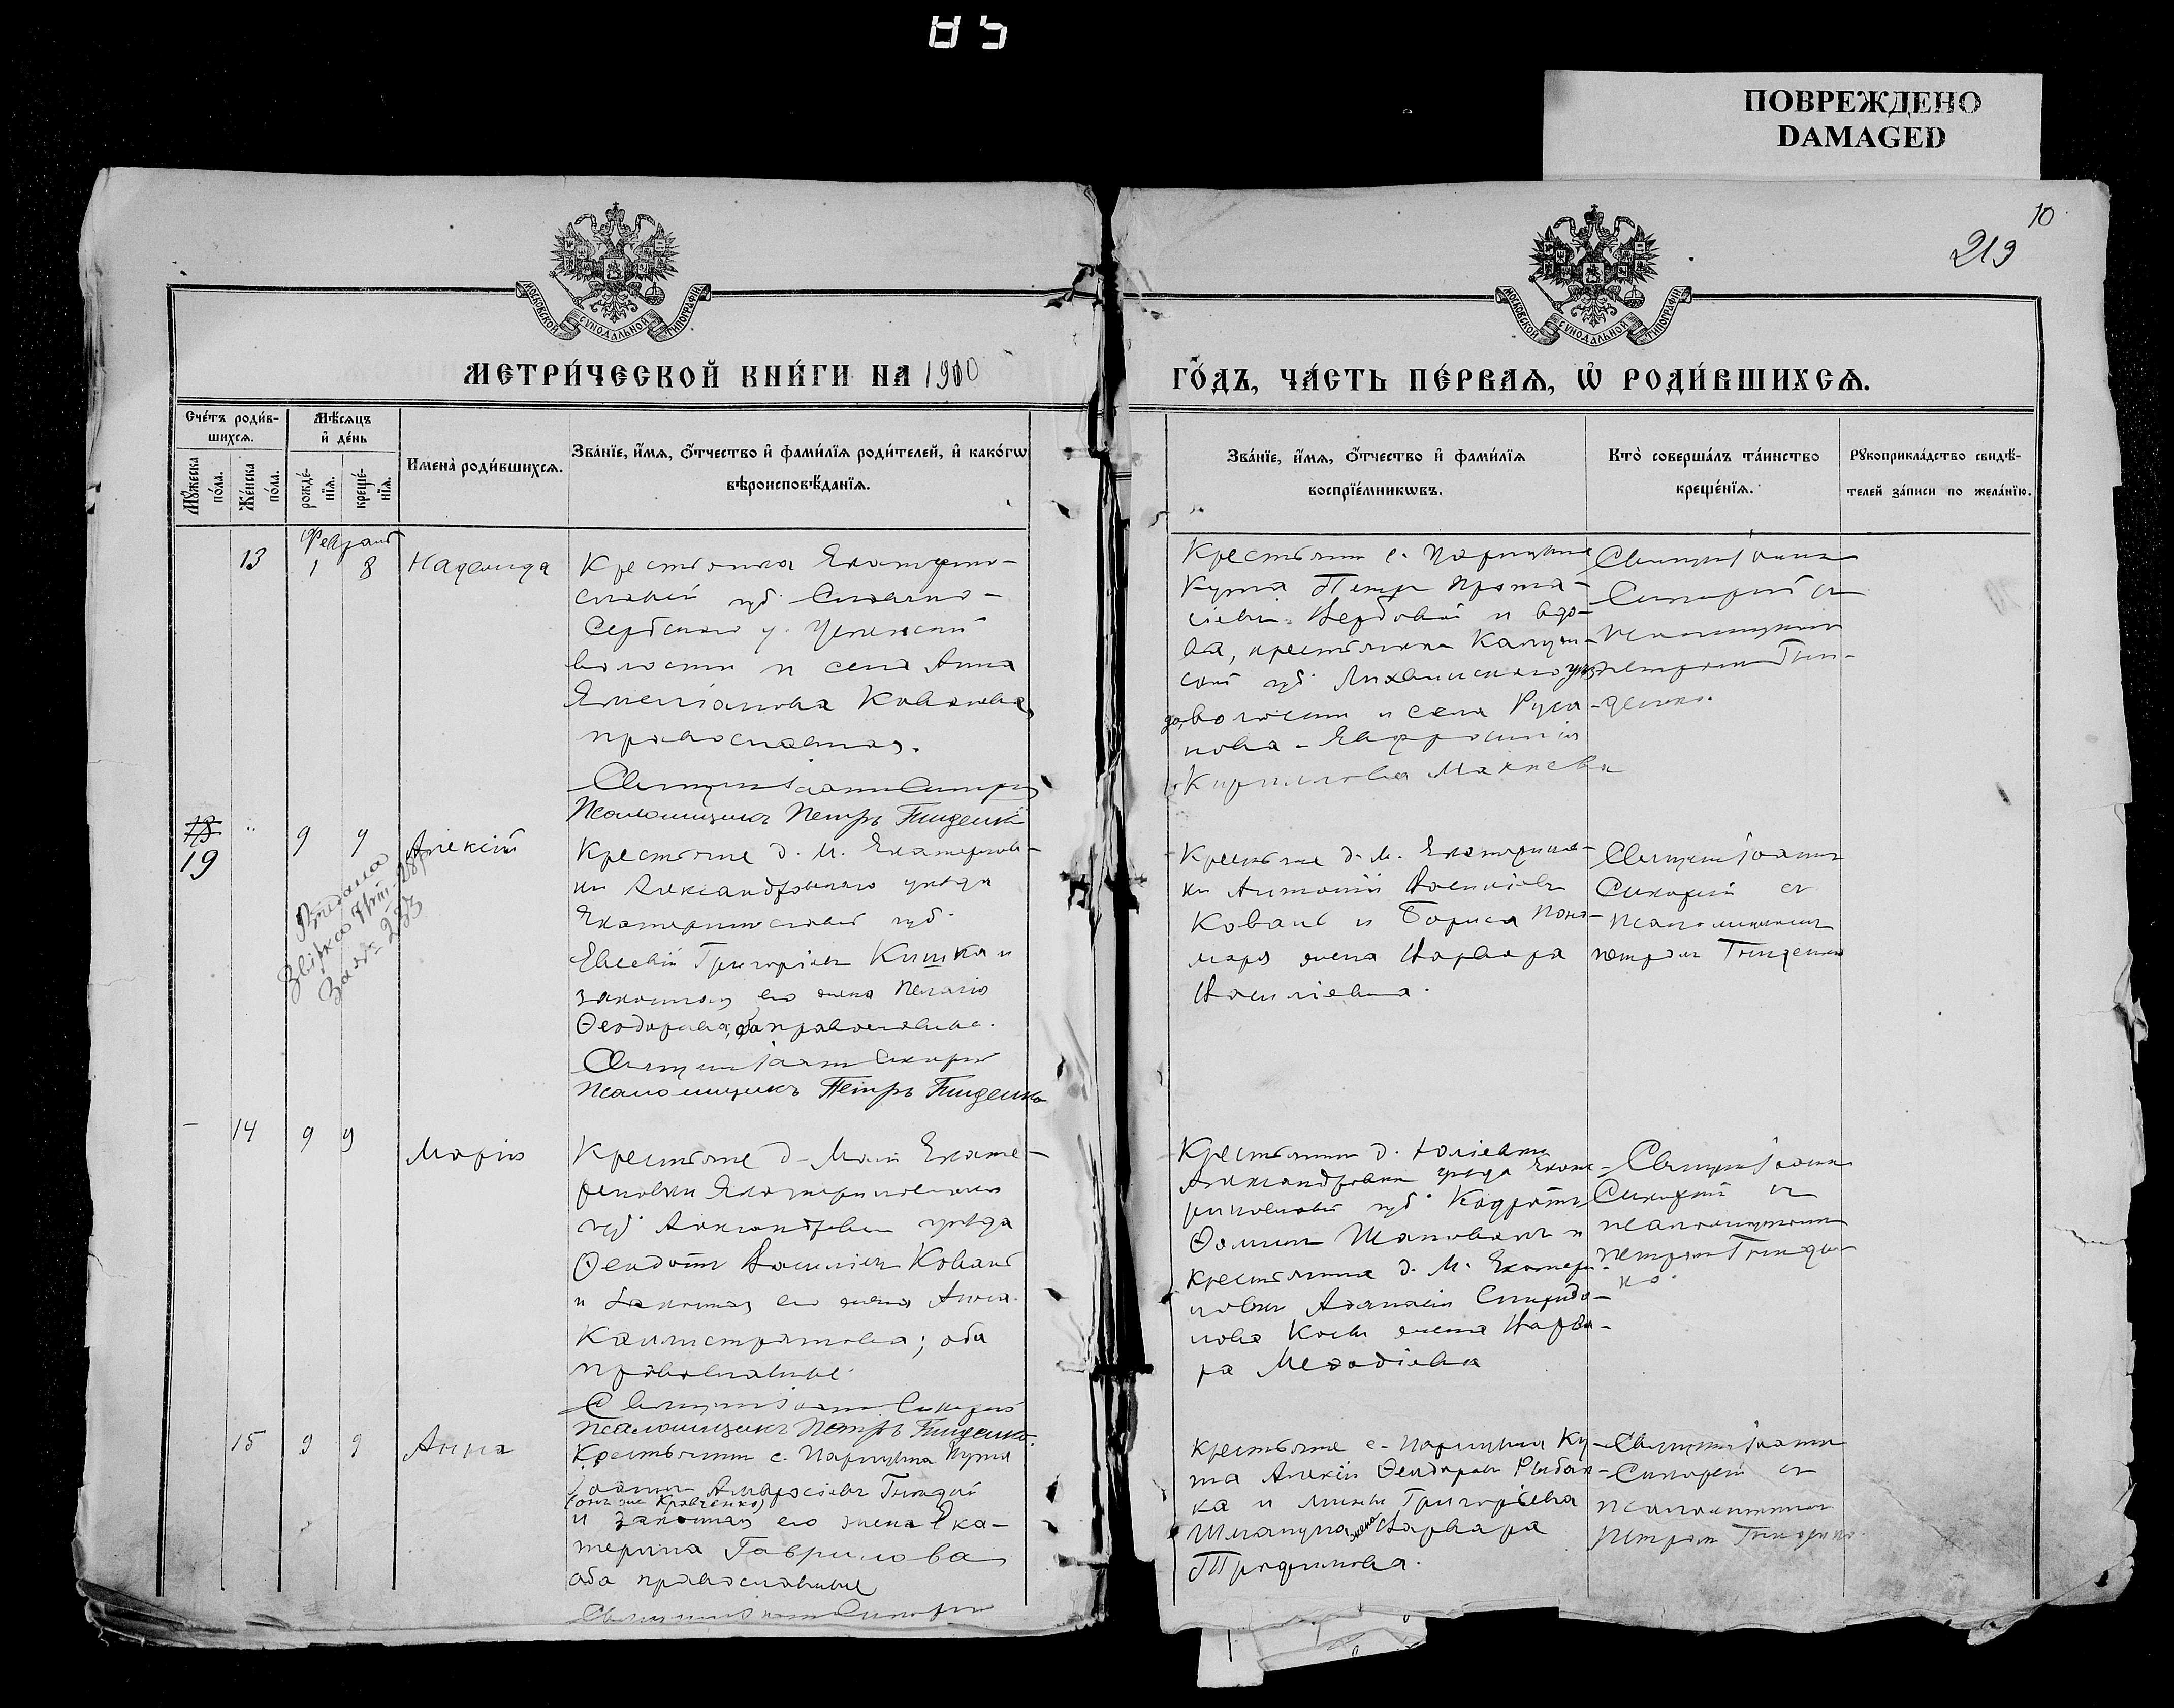 ПОВРЕЖДЕНО
DAMAGED
10
219
МОСКОВСКОЙ СѴНОДАЛЬНОЙ ТИПОГРАФІИ
МОСКОВСКОЙ СѴНОДАЛЬНОЙ ТИПОГРАФІИ
МЕТРИ́ЧЕСКОЙ КНИ́ГИ НА 1900
ГО́ДЪ, ЧА́СТЬ ПЕ́РВАѦ, Ѽ РОДИ́ВШИХСѦ.
Сче́тъ роди́в-
шихсѧ.
Мꙋ́жеска по́ла.
Же́нска по́ла.
Мѣ́сѧцъ
и҆ де́нь
рожде́-
нїѧ.
креще́-
нїѧ.
И҆мена̀ роди́вшихсѧ.
Зва́нїе, и҆́мѧ, ѻ҆́тчество и҆ фами́лїѧ роди́телей, и҆ како́гѡ
вѣроисповѣ́данїѧ.
Зва́нїе, и҆́мѧ, ѻ҆́тчество и҆ фами́лїѧ
воспрїе́мникѡвъ.
Кто̀ соверша́лъ та́инство
креще́нїѧ.
Рꙋкоприкла́дство свидѣ́-
телей за́писи по жела́нїю.
13
Февраль
1 8
Надежда
Крестьянка Екатерино-
славской губ. Славяно-
Сербскаго у. Успенской
волости и села Анна
Емеліанова Ковалева,
православная.
Священ Іоаннъ Сикорскій
Псаломщикъ Петръ Гниденко
Крестьянинъ с. Парицына
Кута Петръ Прота-
сіевъ Вербовой и вдо-
ва, крестьянка
губ. Лихвинскаго уѣз-
да, волости и села Руса-
нова - Евфросинія
Кириллова
Священ Іоаннъ
Сикорскій съ
псаломщикомъ
Петромъ Гни-
денко.
18
19
" 9 9
Алексій
Выдана
Крестьяне д. М. Екатеринов-
ки Александровскаго уѣзда
Екатеринославской губ.
Евсевій Григоріевъ Кишка и
законная его жена Пелагія
Ѳеодорова, оба православные.
Священ Іоаннъ Сикорскій
Псаломщикъ Петръ Гниденко
Крестьяне д. М. Екатеринов-
ки Антоній Васильевъ
Коваль и Бориса Поно-
маря жена Варвара
Васильевна.
Священ Іоаннъ
Сикорскій съ
псаломщикомъ
Петромъ Гниденко
- 14 9 9
Марія
Крестьяне д. Малой Екате-
риновки Екатеринославской
губ. Александровскаго уѣзда
Ѳеодотъ Васильевъ Коваль
и законная его жена Анна
Каллистратова; оба
православные.
Священ Іоаннъ Сикорскій
Псаломщикъ Петръ Гниденко.
Крестьянинъ д. Юліевки
Александровск. уѣзда Екате-
ринославской губ. Кодратъ
Ѳоминъ Шаповалъ и
крестьянина д. М. Екатери-
новки Аѳанасія Спиридо-
нова жена Варва-
ра Меѳодіева
Священ Іоаннъ
Сикорскій съ
псаломщикомъ
Петромъ Гниден-
ко.
15 9 9
Анна
Крестьянинъ с. Парицына Кута
Іоаннъ Амвросіевъ
(онъ же Кравченко)
и законная его жена Ека-
терина Гаврилова
оба православные
Священ Іоаннъ Сикорскій
Крестьяне с. Парицына Ку-
та Алексій Ѳеодоровъ Рыбал-
ка и Григорьева
жена Варвара
Трофимова.
Священ Іоаннъ
Сикорскій съ
псаломщикомъ
Петромъ Гниденко.